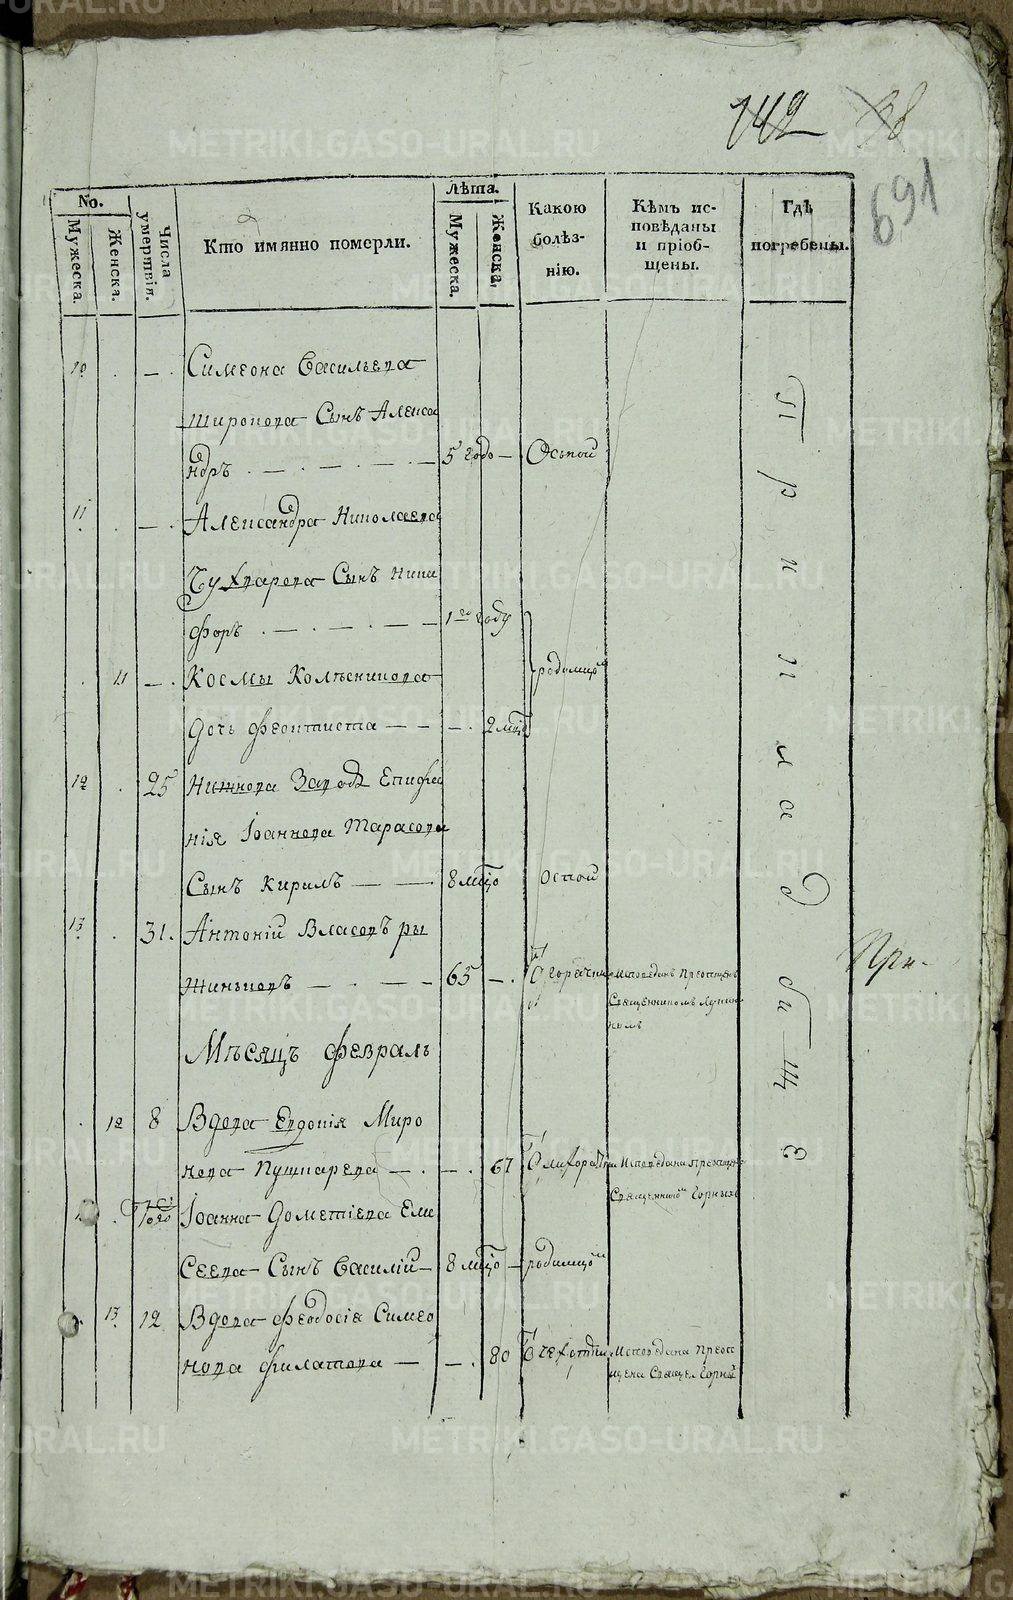 142 98
691
No.
Мужеска.
Женска.
Числа умертвія.
Кто имянно померли.
Лѣта.
Мужеска.
Женска,
Какою болѣз-нію.
Кѣмъ ис-повѣданы и пріоб-щены.
Гдѣ погребены.
10 . — . Симеона Васильева
Широкова Сынъ Алекса
ндръ . — . — . — . — 5 годо — Оспой
11 . — . Александра Николаева
Чухарева Сынъ Ники
форъ . — . — . — 1го году
. 11 — . Космы Колѣсникова родимцо
Дочь Феоктиста — — — . 2 мцо
12 . 25 Нижнова Завода Епифа
нія Іоаннова Тарасова
Сынъ Кирилъ — — 8 мцо Оспой
13 . 31. Антоній Власовъ ры
жиньковъ — . — . — 65 — . Ѿ горячки Исповеданъ Преобщенъ
Священникомъ
Мѣсяцъ Февраль
. 12 8 Вдова Евдокія Миро
нова Пушкарева — . — . 67 Ѿ лихорадки Исповедана преобщена
Священнико Горныхъ
. Того Іоанна Дометіева Ели
Сеева Сынъ Василій — 8 мцо — родимцо
. 13. 12 Вдова Феодосія Симео
нова Филатова — — . 80 Ѿ чехотки Исповедана Преоб
щена Священ Горны
При кладбищѣ
При-
METRIKI.GASO-URAL.RU